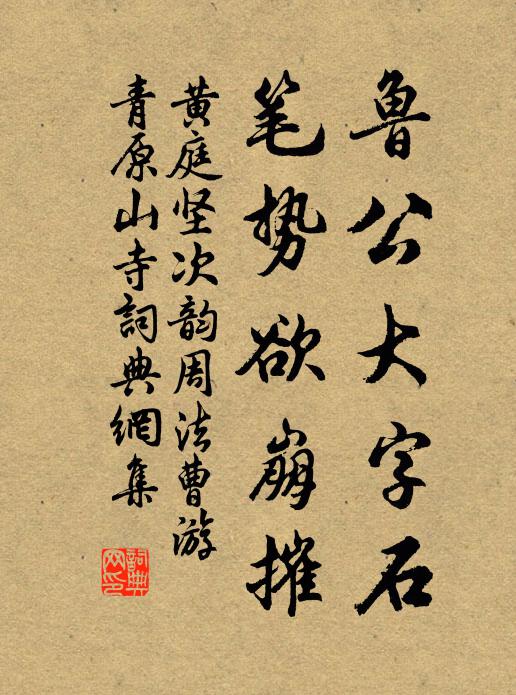 鲁公大字石
笔势欲崩摧
黄庭坚次韵周法曹游
青原山寺詞典網集
詞典
网印